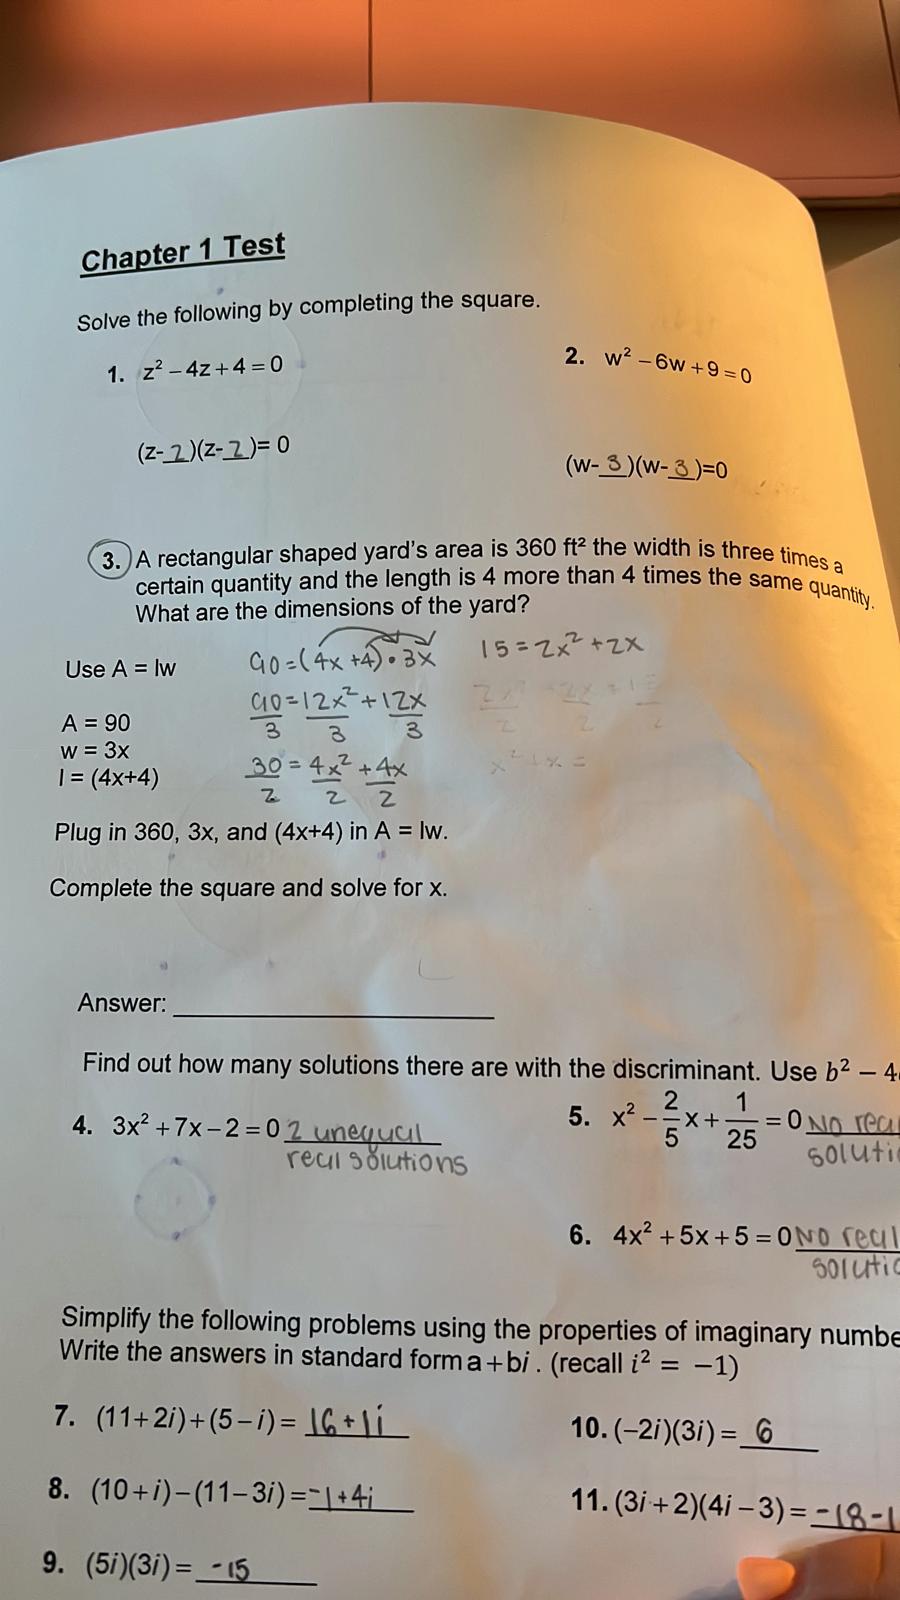 Chapter 1 Test
Solve the following by completing the square.
1. z² – 4z + 4 = 0
2. w² – 6w + 9 = 0
(z-2)(z-2)= 0
(w-3)(w-3)=0
3. A rectangular shaped yard's area is 360 ft² the width is three times a
certain quantity and the length is 4 more than 4 times the same quantity.
What are the dimensions of the yard?
Use A = lw
90=(4x+4)•3x
15=2x²+2x
90/3=12x²/3+12x/3
A = 90
w = 3x
l = (4x+4)
30/2=4x²/2+4x/2
x²+x=
Plug in 360, 3x, and (4x+4) in A = lw.
Complete the square and solve for x.
Answer:
Find out how many solutions there are with the discriminant. Use b² – 4
4. 3x² + 7x – 2 = 0 2 unequal
real solutions
5. x² – 2/5x + 1/25 = 0 No real
soluti
6. 4x² + 5x + 5 = 0 No real
soluti
Simplify the following problems using the properties of imaginary numbe
Write the answers in standard form a + bi . (recall i² = –1)
7. (11+2i)+(5–i)= 16+1i
10. (–2i)(3i)= 6
8. (10+i)–(11–3i)= -1+4i
11. (3i+2)(4i–3)= -18-1
9. (5i)(3i)= -15